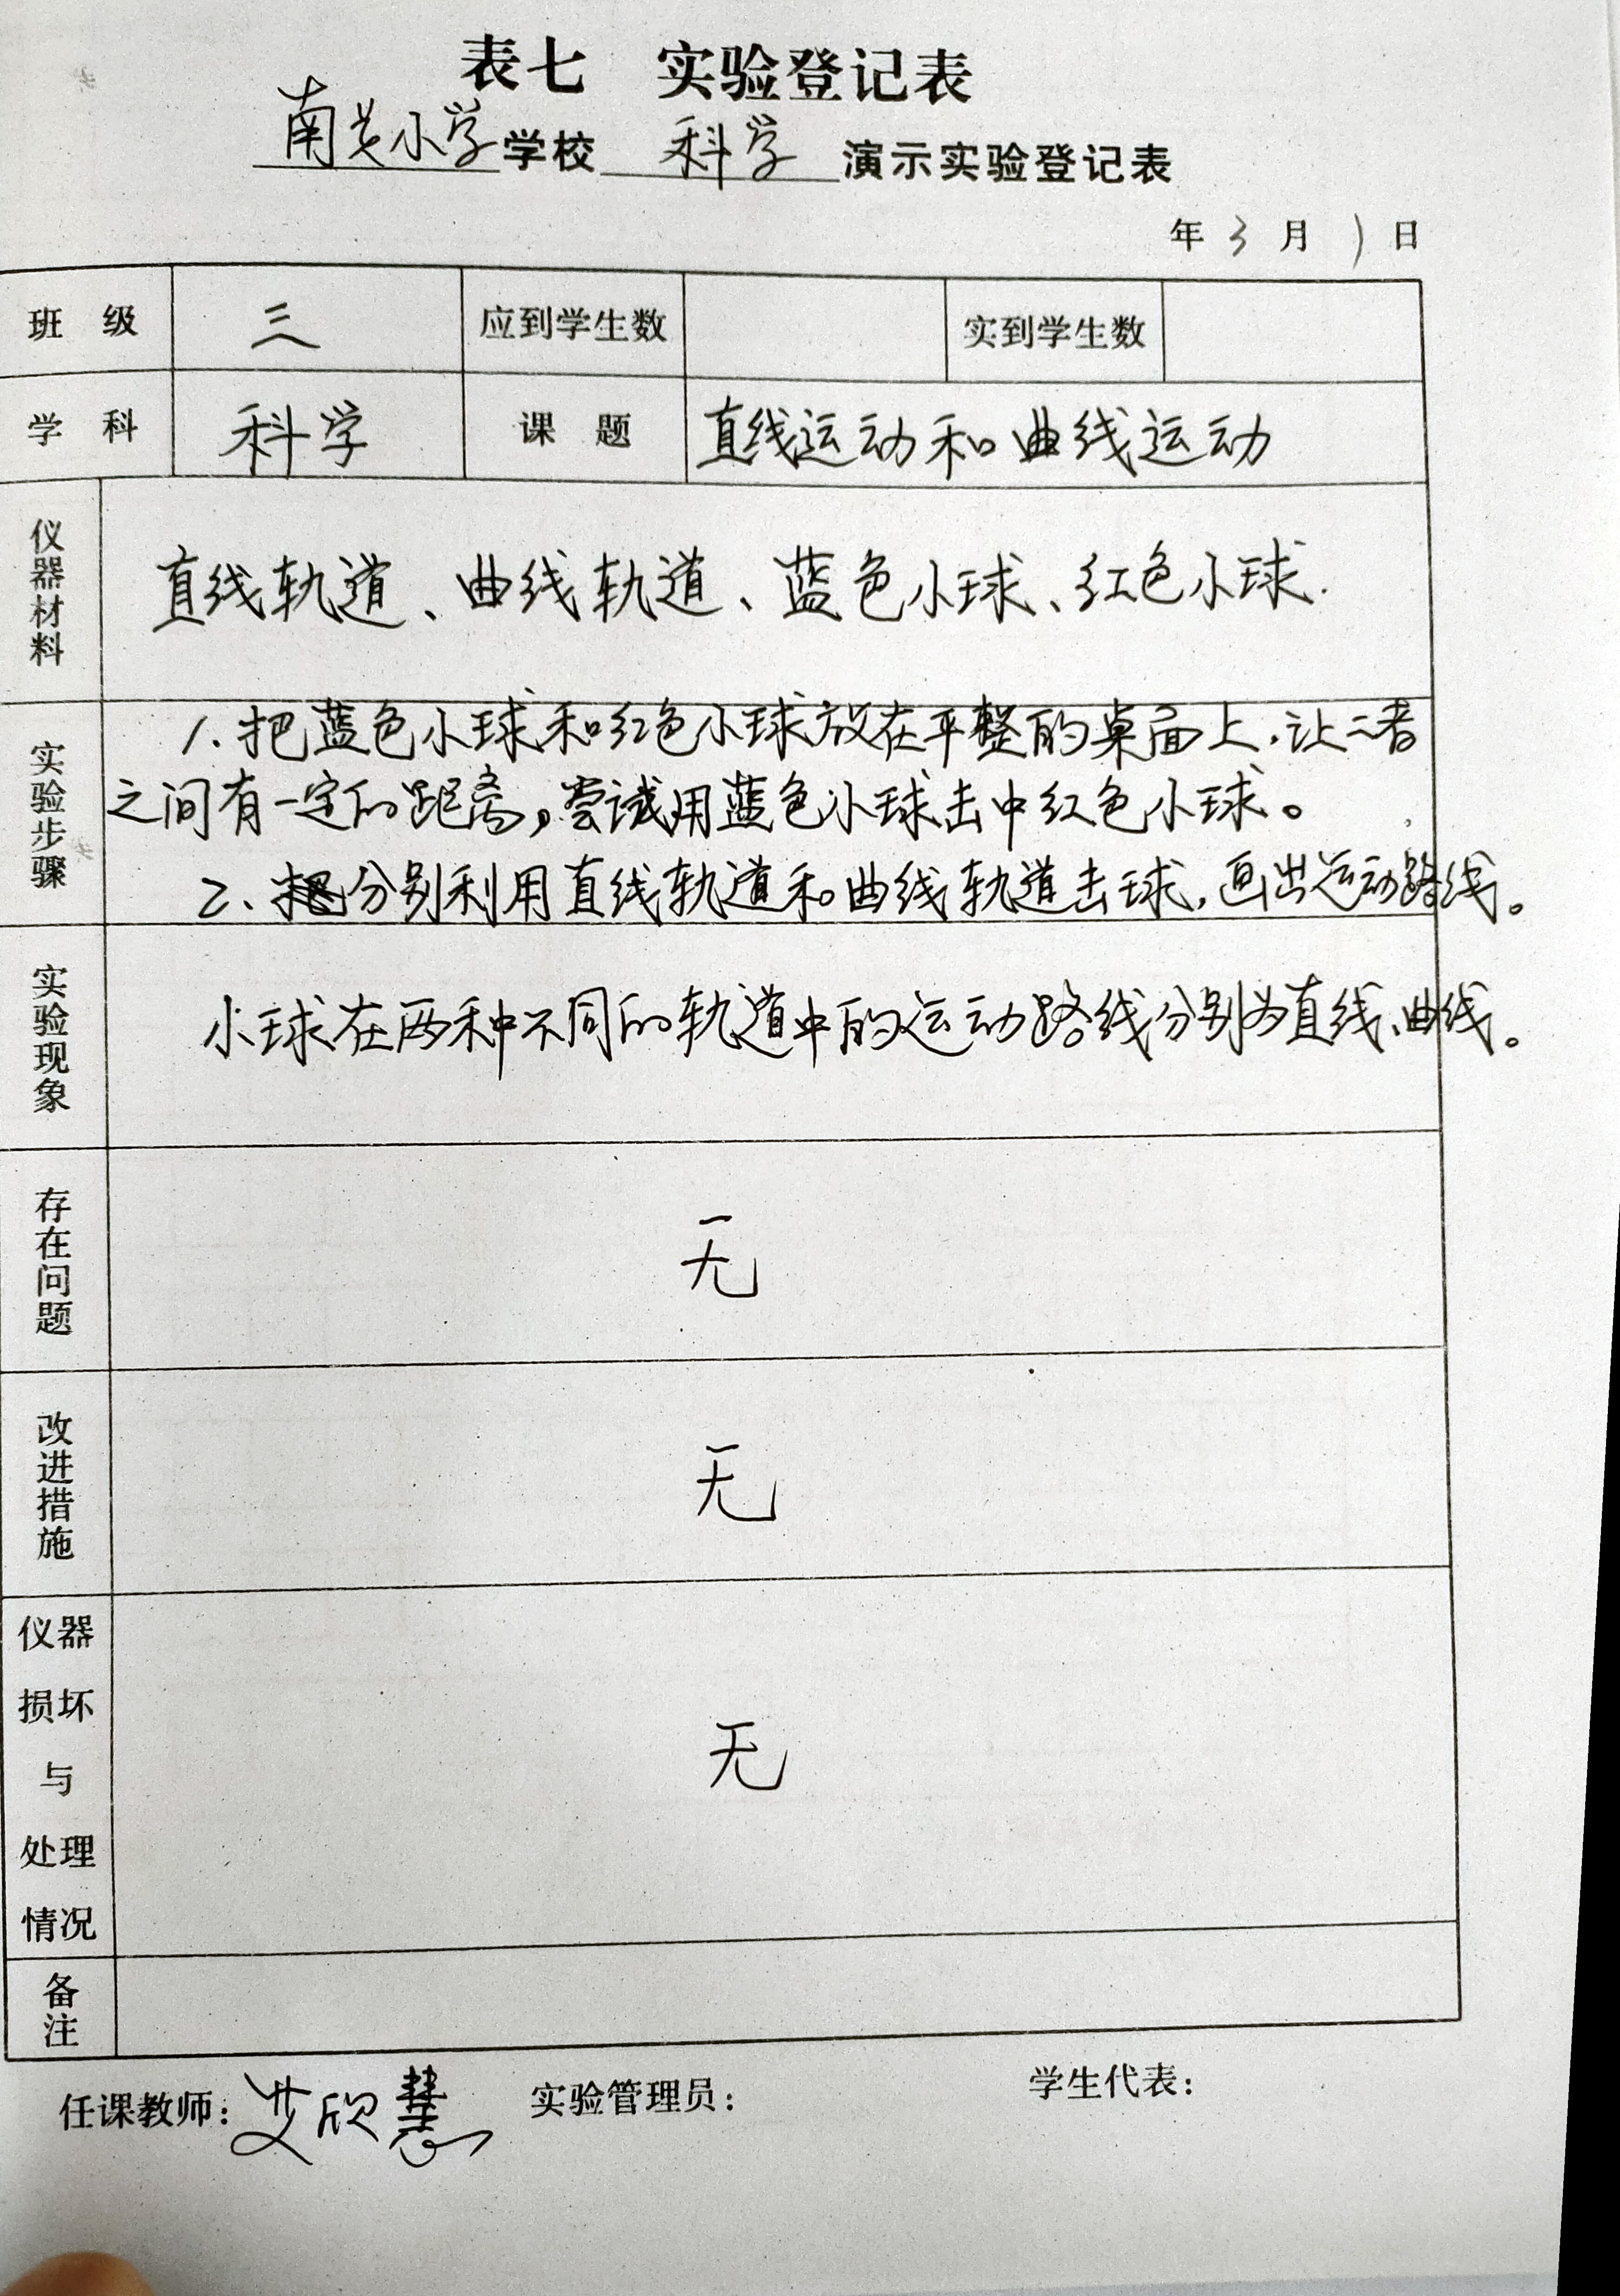 表七 实验登记表
南关小学学校 科学 演示实验登记表
年 3 月 1 日
班级 三 应到学生数 实到学生数
学科 科学 课题 直线运动和曲线运动
仪器材料 直线轨道、曲线轨道、蓝色小球、红色小球.
实验步骤
1.把蓝色小球和红色小球放在平整的桌面上,让二者
之间有一定的距离,尝试用蓝色小球击中红色小球。
2、分别利用直线轨道和曲线轨道击球,画出运动路线。
实验现象
小球在两种不同的轨道中的运动路线分别为直线、曲线。
存在问题 无
改进措施 无
仪器
损坏
与
处理
情况
无
备注
任课教师:艾欣慧 实验管理员: 学生代表: